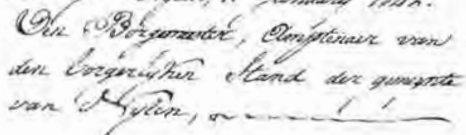 Den Borgemeester, Amptenaer van
den borgerlyken Stand der gemeynte
van Nylen,